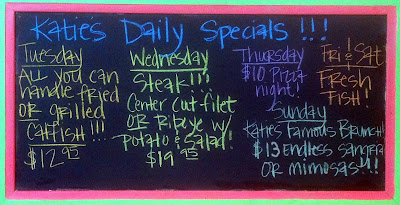 Katie's Daily Specials !!!
Tuesday
ALL you can
handle fried
OR grilled
Catfish!!!
$12.95
Wednesday
Steak!!!
Center cut filet
OR Ribeye w/
Potato & Salad!
$19.95
Thursday
$10 Pizza
night!
Fri & Sat
Fresh
Fish!
Sunday
Katies Famous Brunch!!
$13 Endless sangria
OR mimosas!!!!